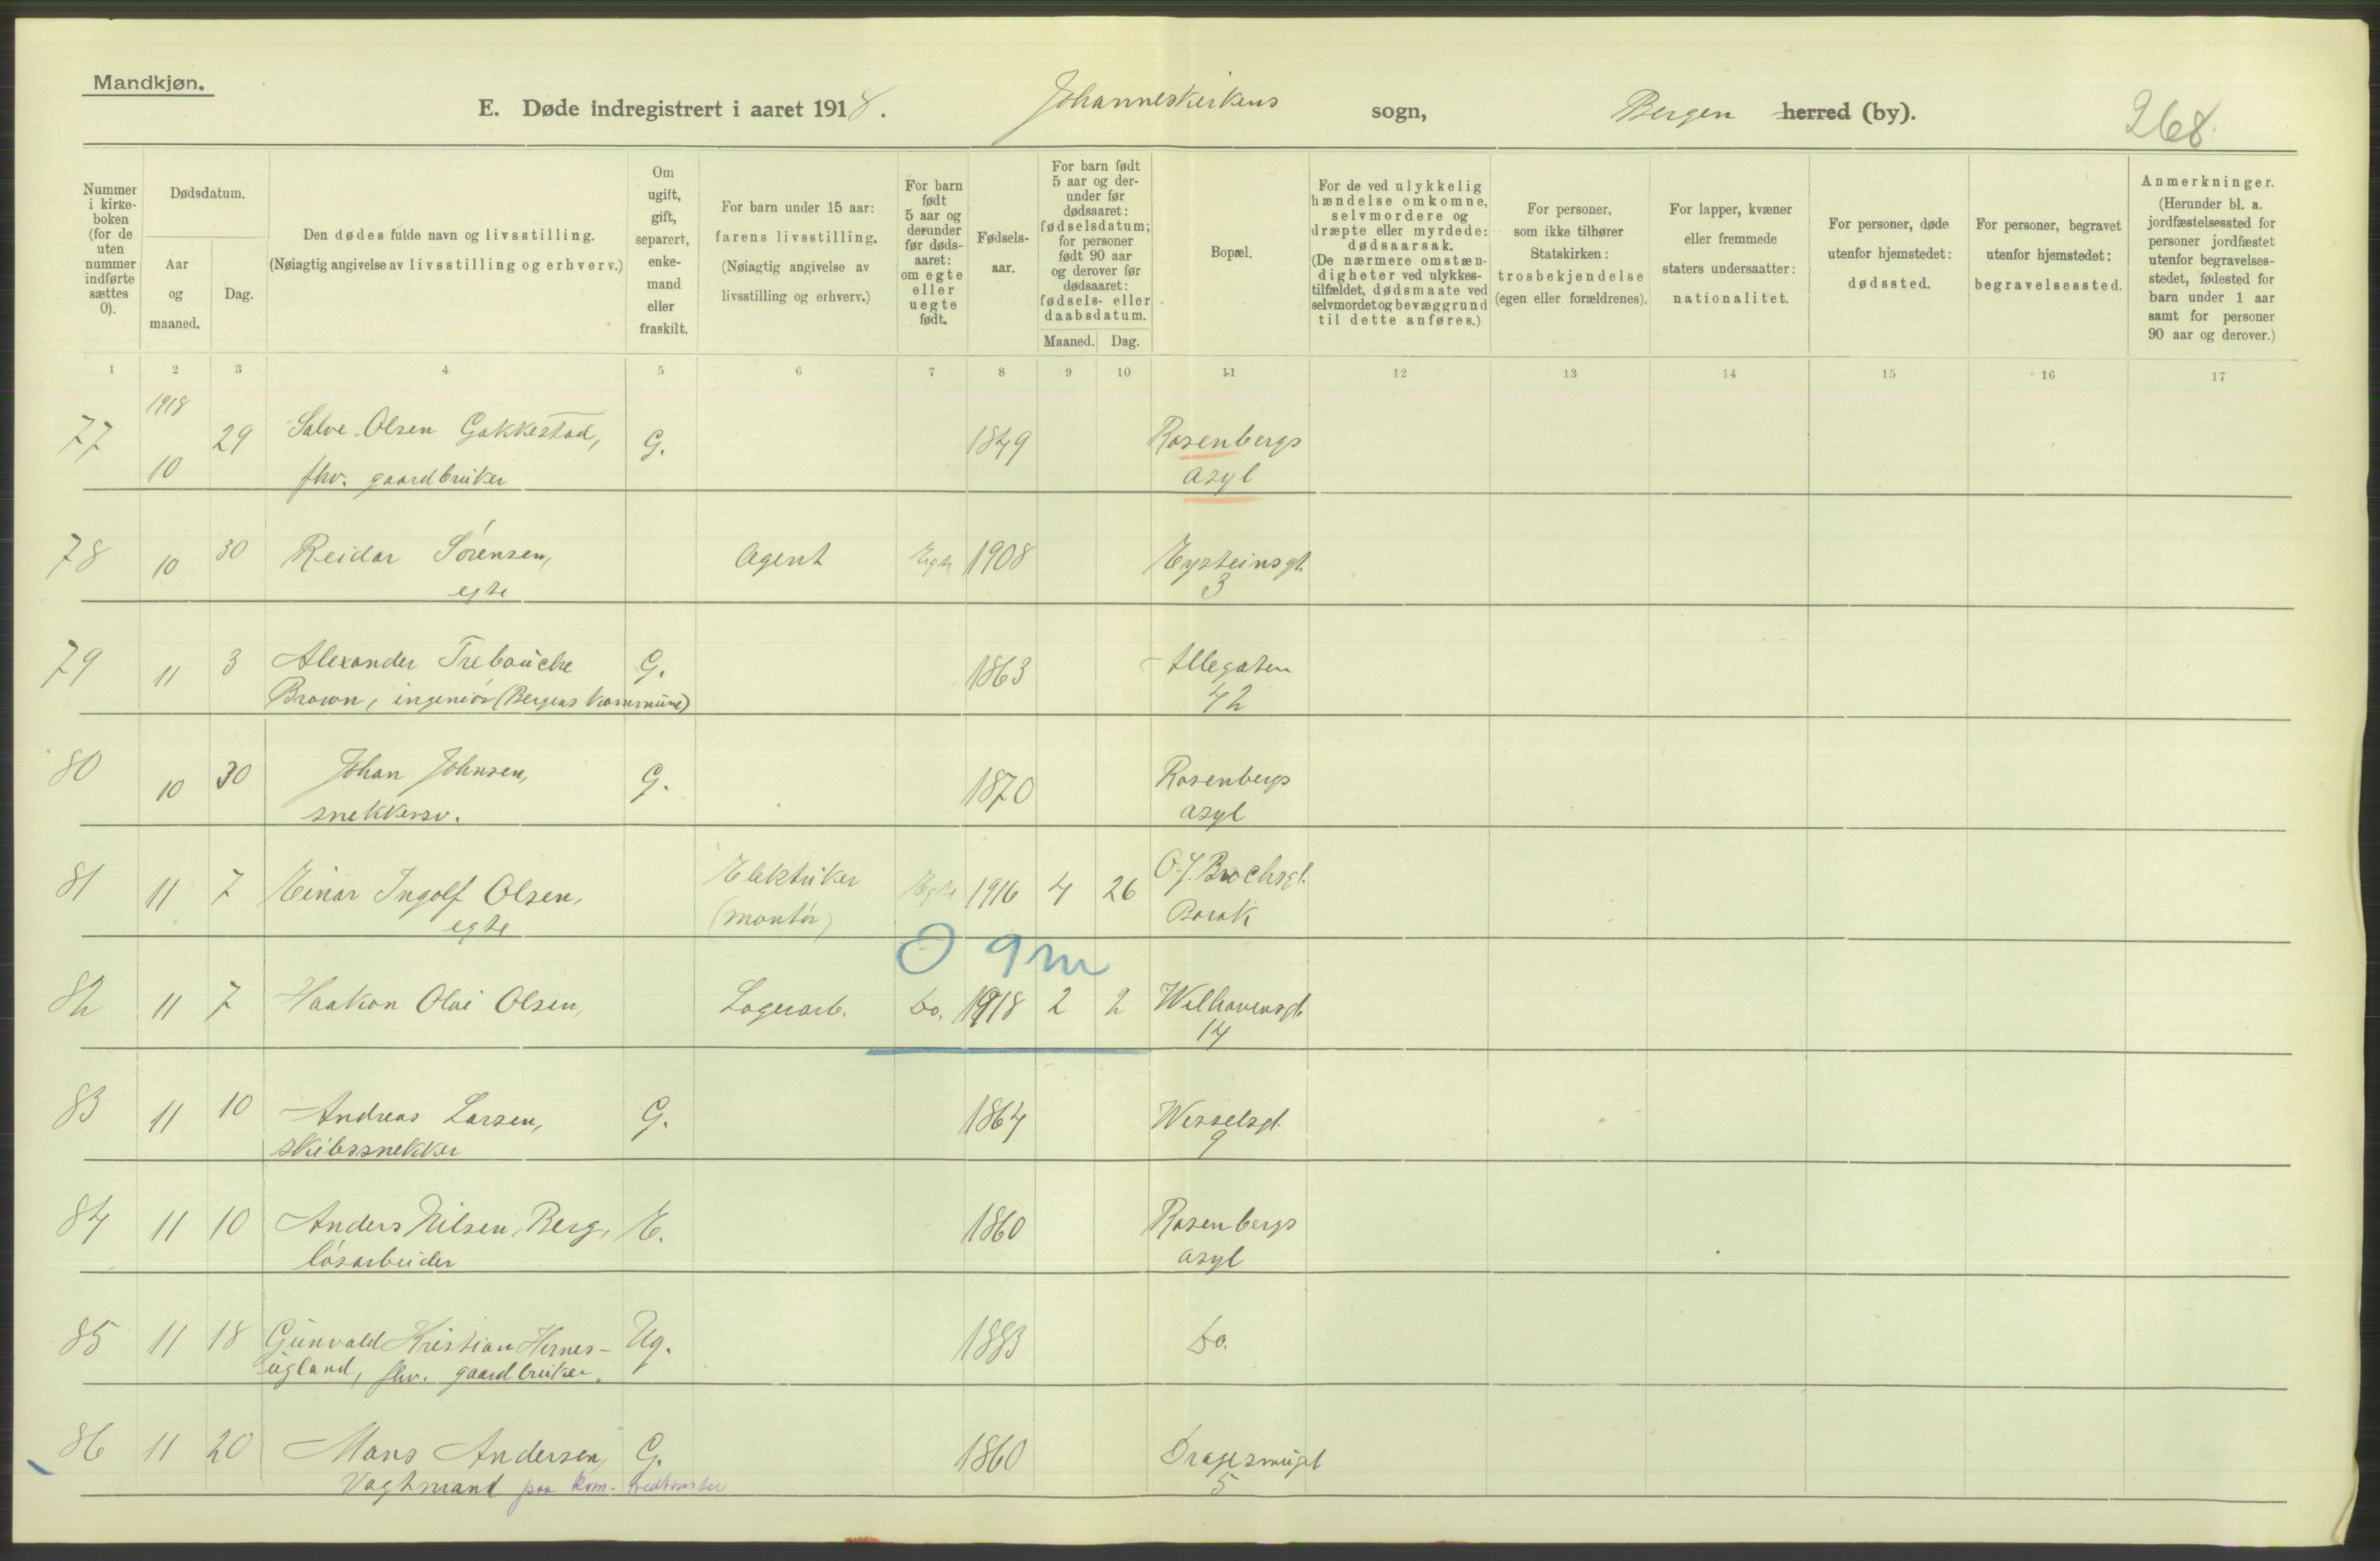 Mandkjøn.
E. Døde indregistrert i aaret 1918. Johanneskirkens sogn, Bergen herred (by). 268.
Nummer i kirke-boken (for de uten nummer indførte sættes 0).
Dødsdatum.
Aar og maaned.
Dag.
Den dødes fulde navn og livsstilling.
(Nøiagtig angivelse av livsstilling og erhverv.)
Om ugift, gift, separert, enke-mand eller fraskilt.
For barn under 15 aar: farens livsstilling.
(Nøiagtig angivelse av livsstilling og erhverv.)
For barn født 5 aar og derunder før døds-aaret: om egte eller uegte født.
Fødsels-aar.
For barn født 5 aar og der-under før dødsaaret: fødselsdatum; for personer født 90 aar og derover før dødsaaret: fødsels- eller daabsdatum.
Maaned. Dag.
Bopæl.
For de ved ulykkelig hændelse omkomne, selvmordere og dræpte eller myrdede: dødsaarsak.
(De nærmere omstæn-digheter ved ulykkes-tilfældet, dødsmaate ved selvmordet og bevæggrund til dette anføres.)
For personer, som ikke tilhører Statskirken: trosbekjendelse (egen eller forældrenes).
For lapper, kvæner eller fremmede staters undersaatter: nationalitet.
For personer, døde utenfor hjemstedet: dødssted.
For personer, begravet utenfor hjemstedet: begravelsessted.
Anmerkninger.
(Herunder bl. a. jordfæstelsessted for personer jordfæstet utenfor begravelses-stedet, fødested for barn under 1 aar samt for personer 90 aar og derover.)
1 2 3 4 5 6 7 8 9 10 11 12 13 14 15 16 17
1918
77 10 29 Salve Olsen Gakkestad, G. 1849 Rosenbergs
fhv. gaardbruker asyl
78 10 30 Reidar Sörensen, Agent Egte 1908 Eysteinsgt.
egte 3
79 11 3 Alexander Trebouche G. 1863 Allegaten
Brown, ingeniör (Bergens kommune) 42
80 10 30 Johan Johnsen, G. 1870 Rosenbergs
snekkersv. asyl
81 11 7 Einar Ingolf Olsen, Elektriker Egte 1916 4 26 O.J. Brochsgt.
egte (montör) Barak
0 9 m
82 11 7 Haakon Olai Olsen, Lagerarb. Do. 1918 2 2 Welhavensgt.
14
83 11 10 Andreas Larsen, G. 1864 Wesselsgt.
skibssnekker 9
84 11 10 Anders Nilsen Berg, E. 1860 Rosenbergs
lösarbeider asyl
85 11 18 Gunvald Kristian Hernes- Ug. 1883 Do.
ugland, fhv. gaardbruker.
86 11 20 Mons Andersen, G. 1860 Dragesmuget
Vagtmand paa kom. 5